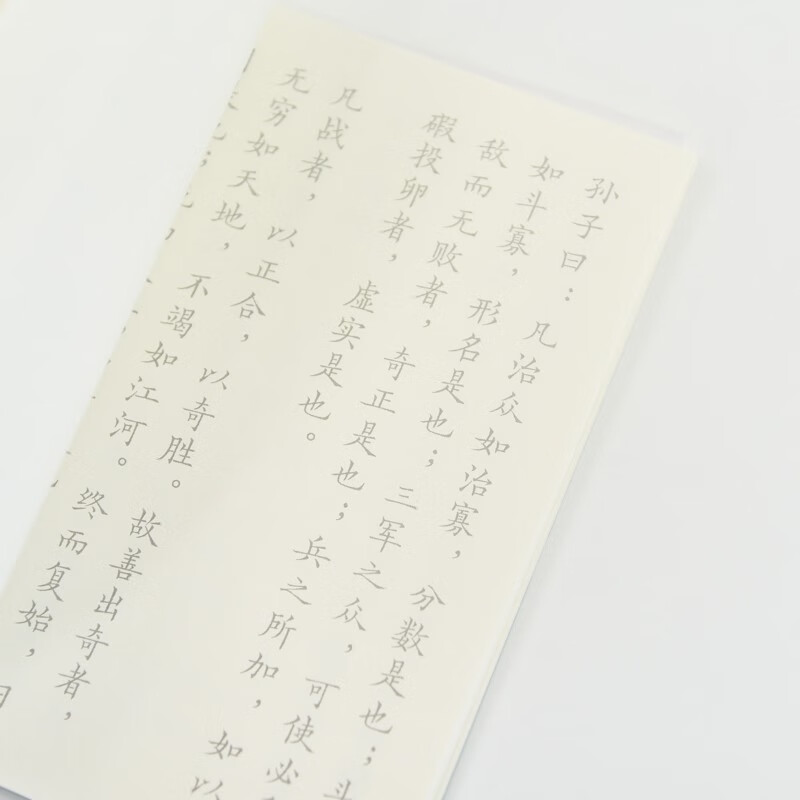 孙子曰：凡治众如治寡，分数是也；斗
如斗寡，形名是也；三军之众，可使必
敌而无败者，奇正是也；兵之所加，如以
碬投卵者，虚实是也。
凡战者，以正合，以奇胜。故善出奇者，
无穷如天地，不竭如江河。终而复始，日